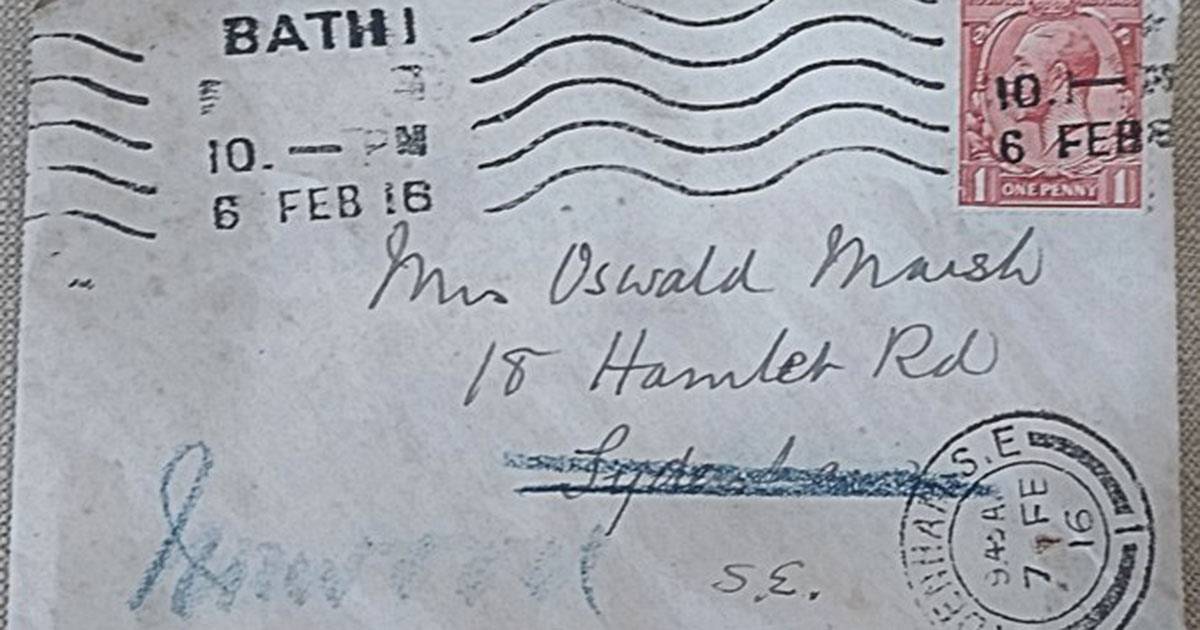 BATH 1
10. — PM
6 FEB 16
10.1 —
6 FEB
1 ONE PENNY 1
Mrs Oswald Marsh
18 Hamlet Rd
Sydenham
S.E.
SYDENHAM S.E
9.45 AM
7 FE
16
1